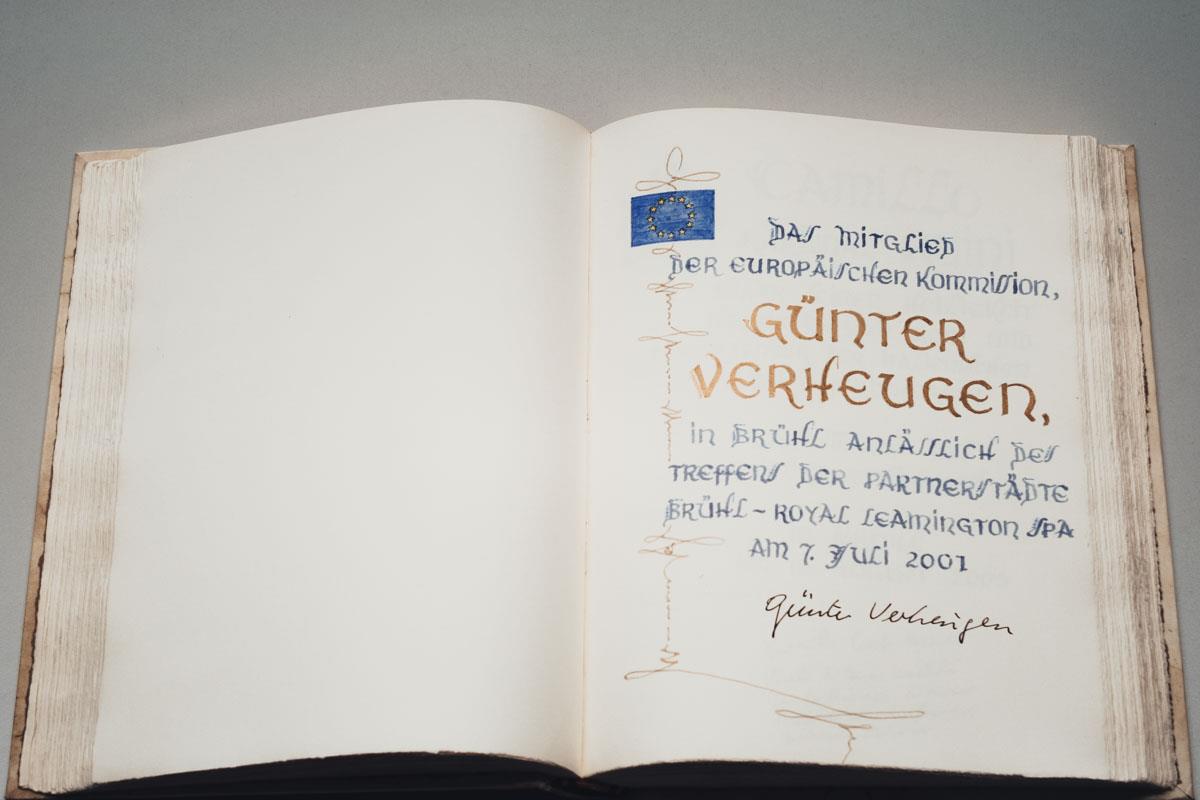 DAS MITGLIED
DER EUROPÄISCHEN KOMMISSION,
GÜNTER
VERHEUGEN,
IN BRÜHL ANLÄSSLICH DES
TREFFENS DER PARTNERSTÄDTE
BRÜHL – ROYAL LEAMINGTON SPA
AM 7. JULI 2001
Günter Verheugen